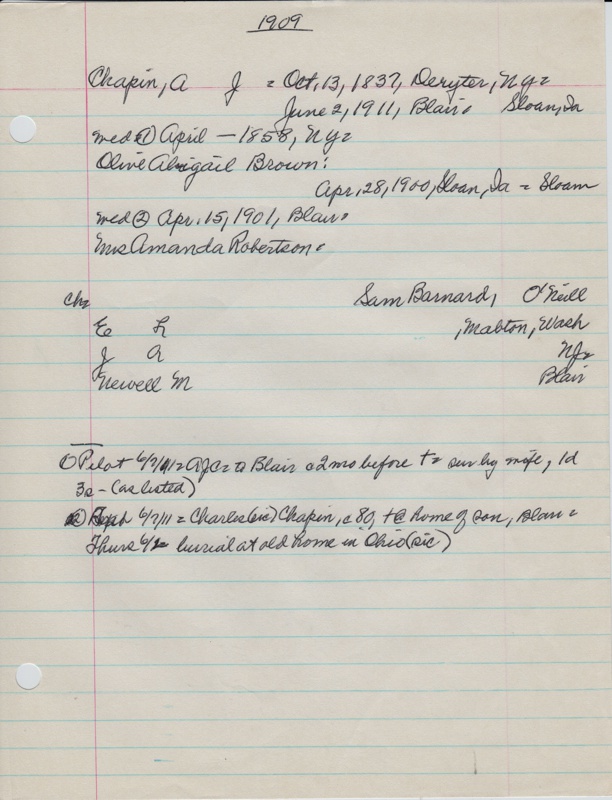 1909
Chapin, A J = Oct. 13, 1837, Deryter, Ny=
June 2, 1911, Blair. Sloan, Ia
wed ① April — 1858, Ny=
Olive Abigail Brown:
Apr. 28, 1900, Sloan, Ia = Sloan
wed ② Apr. 15, 1901, Blair.
Mrs Amanda Robertson.
Ch= Sam Barnard, O'Neill
E L , Mabton, Wash
J A NJ=
Newell M Blair
① Pilot 6/7/11 = AJC = to Blair c2mo before †= surv by wife, 1d
3s - (as listed)
② 6/7/11 = Charles (sic) Chapin, c 80, † @ home of son, Blair =
Thurs 6/ burial at old home in Ohio (sic)